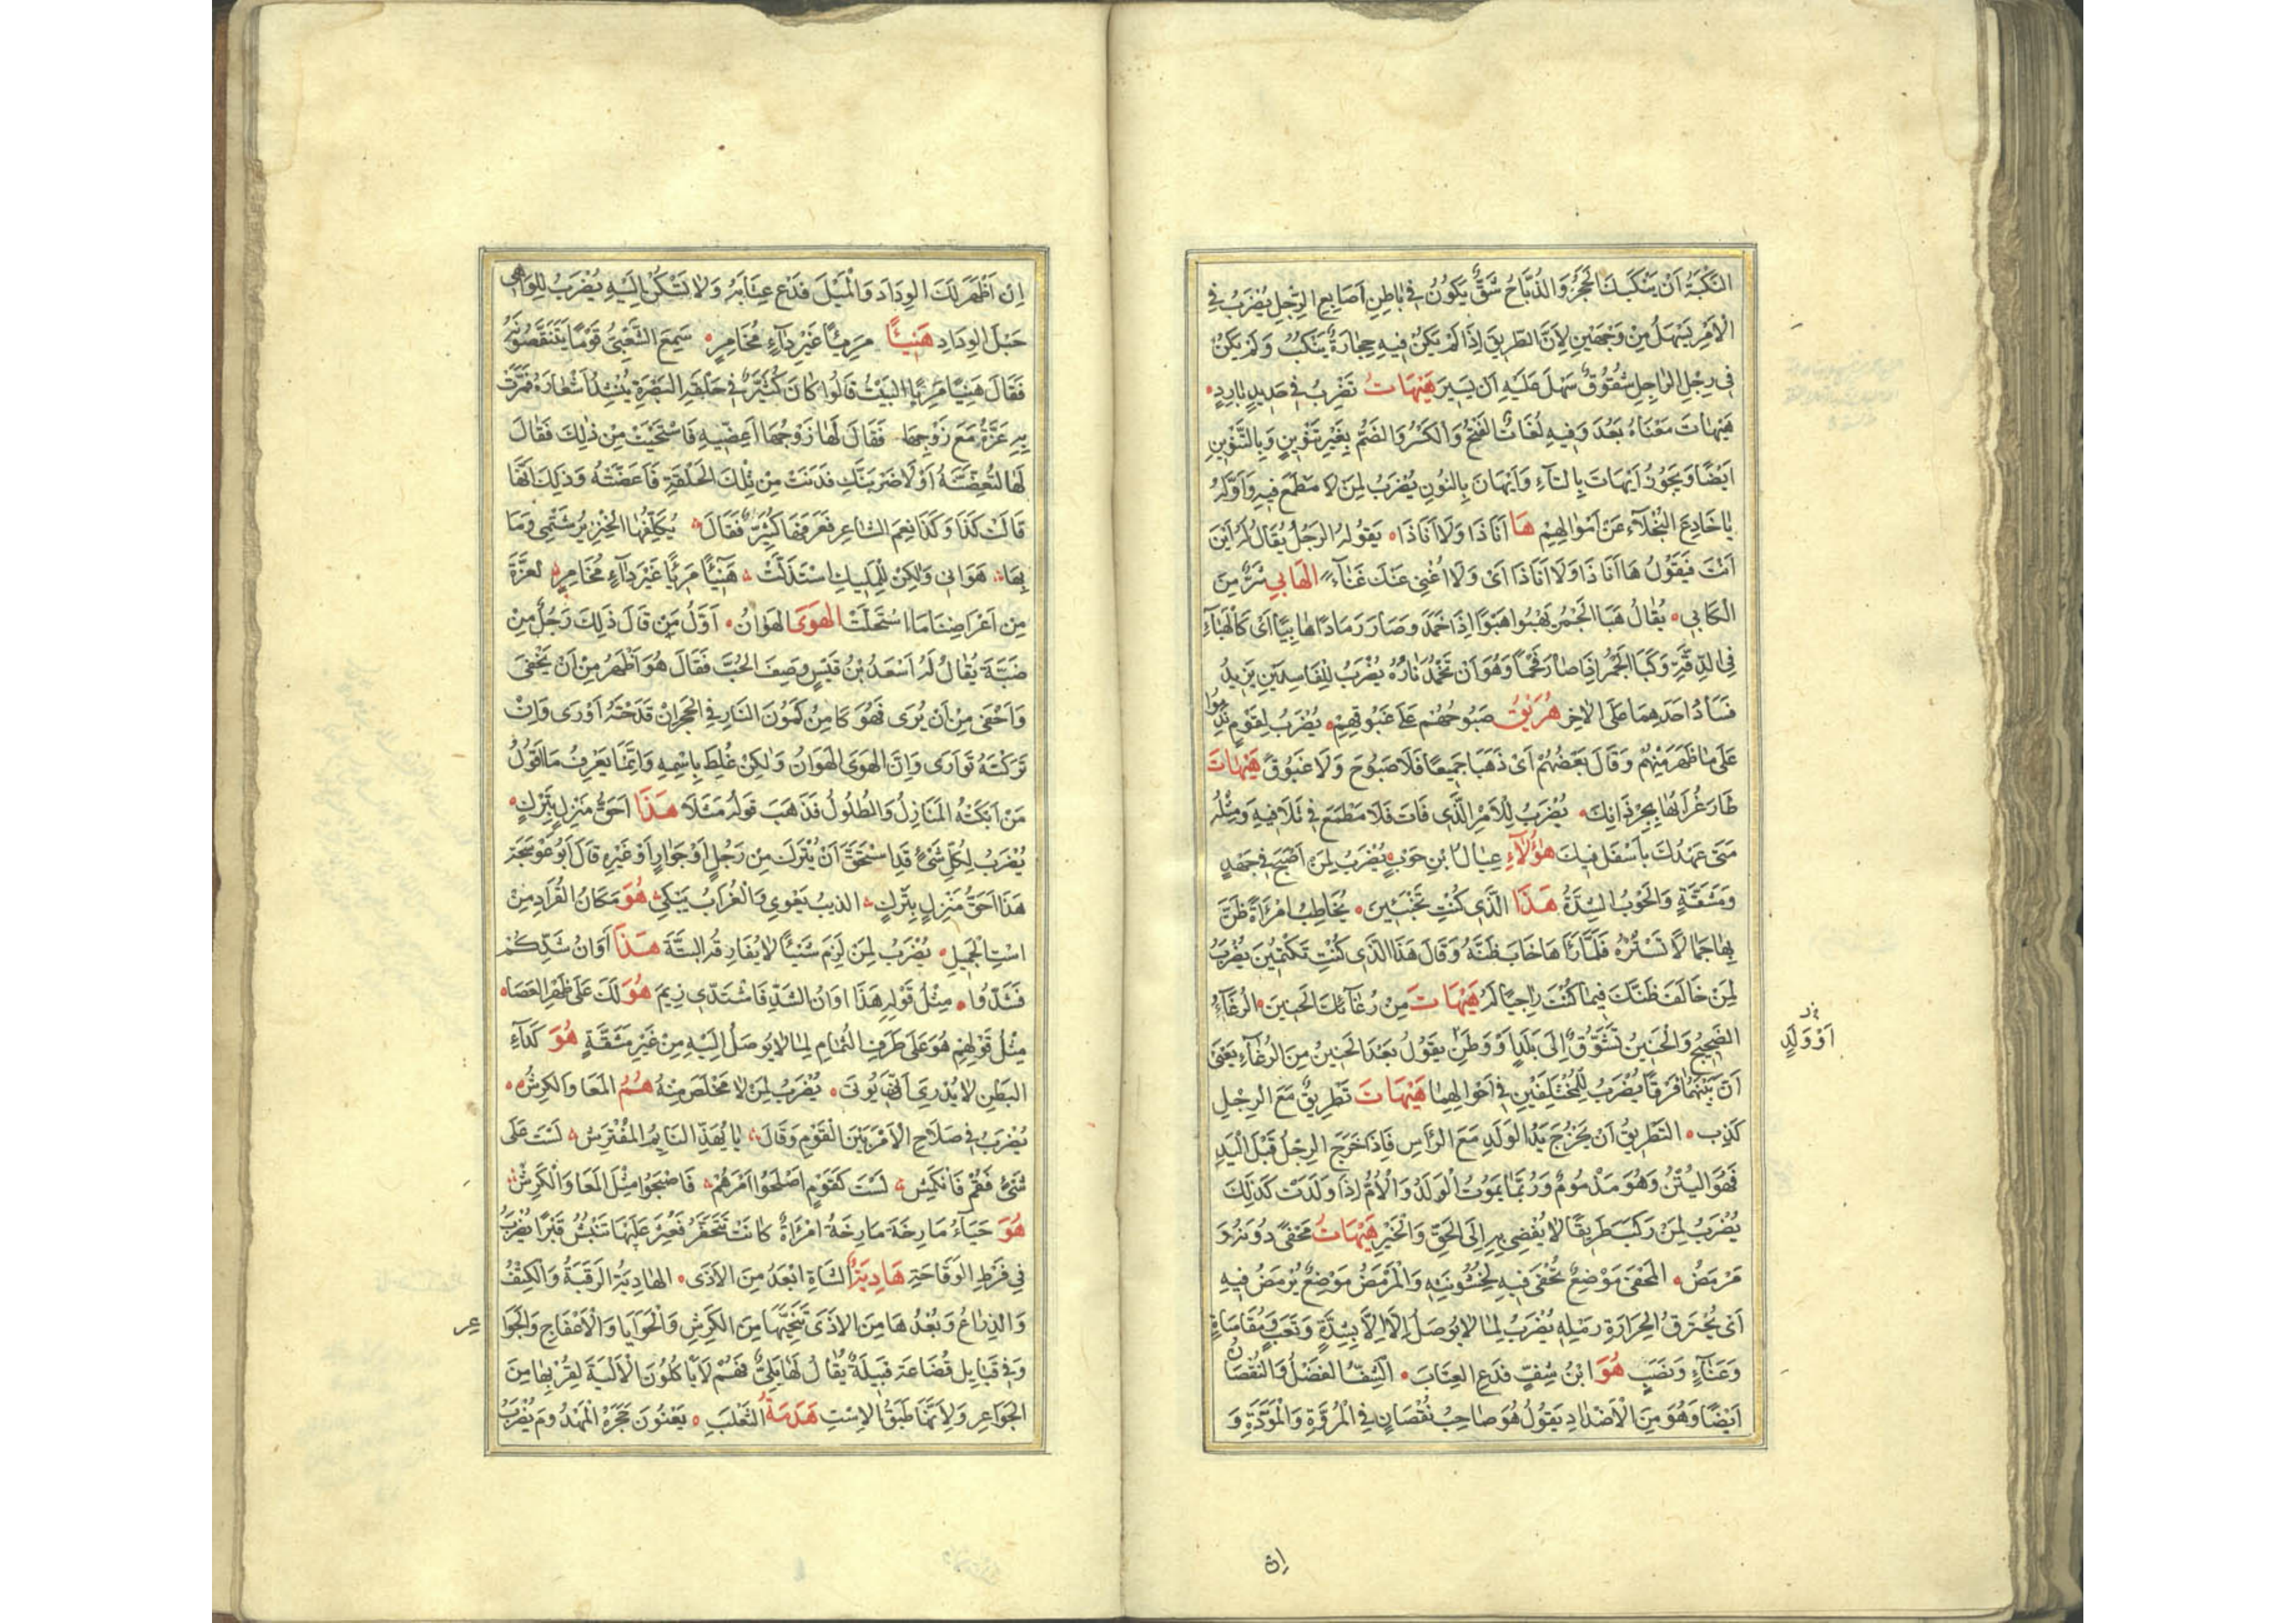 النَّكْبَةُ اَنْ يَنْكُبَكَ الْحَجَرُ وَالذُّبَّاحُ شَقٌّ يَكُونُ فِي بَاطِنِ اَصَابِعِ الرِّجْلِ يُضْرَبُ فِي
الْاَمْرِ يَسْهُلُ مِنْ وَجْهَيْنِ لِاَنَّ الطَّرِيقَ اِذَا لَمْ يَكُنْ فِيهِ حِجَارَةٌ يَنْكُبُ وَلَمْ يَكُنْ
فِي رِجْلِ الرَّاجِلِ شُقُوقٌ سَهُلَ عَلَيْهِ اَنْ يَسِيرَ هَيْهَاتَ تَضْرِبُ فِي حَدِيدٍ بَارِدٍ
هَيْهَاتَ مَعْنَاهُ بَعُدَ وَفِيهِ لُغَاتٌ الفَتْحُ وَالْكَسْرُ وَالضَّمُّ بِغَيْرِ تَنْوِينٍ وَبِالتَّنْوِينِ
اَيْضًا وَيَجُوزُ اَيْهَاتَ بِالتَّاءِ وَاَيْهَانَ بِالنُّونِ يُضْرَبُ لِمَنْ لَا مَطْمَعَ فِيهِ وَاَوَّلُهُ
يَا خَادِعَ الْبُخَلَاءِ عَنْ اَمْوَالِهِمْ هَا اَنَا ذَا وَلَا اَنَا ذَا يَقُولُهُ الرَّجُلُ يُقَالُ لَهُ اَيْنَ
اَنْتَ فَيَقُولُ هَا اَنَا ذَا وَلَا اَنَا ذَا اَىْ وَلَا اُغْنِي عَنْكَ غَنَاءً الْهَابِي شَرٌّ مِنَ
الْكَابِي يُقَالُ هَبَا الْجَمْرُ يَهْبُوا هَبْوًا اِذَا خَمَدَ وَصَارَ رَمَادًا هَابِيًا اَىْ كَالْهَبَاءِ
فِي الدِّقَّةِ وَكَبَا الْجَمْرُ اِذَا صَارَ فَحْمًا وَهُوَ اَنْ تَخْمُدَ نَارُهُ يُضْرَبُ لِلْفَاسِدَيْنِ يَزِيدُ
فَسَادُ اَحَدِهِمَا عَلَى الْاٰخِرِ هُرِيقَ صَبُوحُهُمْ عَلَى غَبُوقِهِمْ يُضْرَبُ لِقَوْمٍ نَدِمُوا
عَلَى مَا ظَهَرَ مِنْهُمْ وَقَالَ بَعْضُهُمْ اَىْ ذَهَبَا جَمِيعًا فَلَا صَبُوحَ وَلَا غَبُوقَ هَيْهَاتَ
طَارَ غُرَابُهَا بِجِرْذَانِكَ يُضْرَبُ لِلْاَمْرِ الَّذِي فَاتَ فَلَا مَطْمَعَ فِي تَلَافِيهِ وَمِثْلُهُ
مَتَى عَهْدُكَ بِاَسْفَلِ فِيكَ هٰؤُلَاءِ عِيَالُ ابْنِ حَوْبٍ يُضْرَبُ لِمَنْ اَصْبَحَ فِي جَهْدٍ
وَمَشَقَّةٍ وَالْحَوْبُ الشِّدَّةُ هَذَا الَّذِي كُنْتِ تَخْبَئِينَ يُخَاطِبُ امْرَاَةً ظَنَّ
بِهَا جَمَالًا تَسْتُرُهُ فَلَمَّا رَآهَا خَابَ ظَنُّهُ وَقَالَ هَذَا الَّذِي كُنْتِ تَكْتُمِينَ يُضْرَبُ
لِمَنْ خَالَفَ ظَنَّكَ فِيمَا كُنْتَ رَاجِيًا لَهُ هَيْهَاتَ مِنْ رُغَائِكَ الْحَنِينَ الرُّغَاءُ
الضَّجِيجُ وَالْحَنِينُ تَشَوُّقٌ اِلَى بَلَدٍ اَوْ وَطَنٍ يَقُولُ بَعُدَ الْحَنِينُ مِنَ الرُّغَاءِ يَعْنِى
اَوْ وَلَدٍ
اَنَّ بَيْنَهُمَا فَرْقًا يُضْرَبُ لِلْمُخْتَلِفَيْنِ فِي اَحْوَالِهِمَا هَيْهَاتَ تَطْرِيقٌ مَعَ الرِّجْلِ
كَذِبٌ التَّطْرِيقُ اَنْ يَخْرُجَ يَدُ الْوَلَدِ مَعَ الرَّاْسِ فَاِذَا خَرَجَ الرِّجْلُ قَبْلَ الْيَدِ
فَهُوَ الْيَتْنُ وَهُوَ مَذْمُومٌ وَرُبَّمَا يَمُوتُ الْوَلَدُ وَالْاُمُّ اِذَا وَلَدَتْ كَذَلِكَ
يُضْرَبُ لِمَنْ رَكِبَ طَرِيقًا لَا يُفْضِي بِهِ اِلَى الْحَقِّ وَالْخَيْرِ هَيْهَاتَ مَحْفًى دُونَهُ وَ
مَرْمَضٌ الْمَحْفَى مَوْضِعٌ تُحْفَى فِيهِ لِخُشُونَتِهِ وَالْمَرْمَضُ مَوْضِعٌ يُرْمَضُ فِيهِ
اَىْ يُحْتَرَقُ لِحَرَارَةِ رَمْلِهِ يُضْرَبُ لِمَا لَا يُوصَلُ اِلَّا بِشِدَّةٍ وَتَعَبٍ وَمُقَاسَاةِ
وَعَنَاءٍ وَنَصَبٍ هُوَ ابْنُ شِفٍّ فَدَعِ الْعِتَابَ الشِّفُّ الْفَضْلُ وَالنُّقْصَانُ
اَيْضًا وَهُوَ مِنَ الْاَضْدَادِ يَقُولُ هُوَ صَاحِبُ نُقْصَانٍ فِي الْمُرُوَّةِ وَالْمَوَدَّةِ وَ
اِن
اِنْ اَظْهَرَ لَكَ الْوِدَادَ وَالْمَيْلَ فَدَعْ عِتَابَهُ وَلَا تَسْكُنْ اِلَيْهِ يُضْرَبُ لِلْوَاهِى
حَبْلِ الْوِدَادِ هَنِيئًا مَرِيئًا غَيْرَ دَاءٍ مُخَامِرٍ سَمِعَ الشَّعْبِيُّ قَوْمًا يَنْتَقِصُونَهُ
فَقَالَ هَنِيئًا مَرِيئًا الْبَيْتُ قَالُوا كَانَ كُثَيِّرٌ فِي حَلْقَةِ الْبَصْرَةِ يُنْشِدُ اَشْعَارَهُ فَمَرَّتْ
بِهِ عَزَّةُ مَعَ زَوْجِهَا فَقَالَ لَهَا زَوْجُهَا اَعِضِّيهِ فَاسْتَحْيَتْ مِنْ ذٰلِكَ فَقَالَ
لَهَا لَتُعِضِّنَّهُ اَوْ لَاَضْرِبَنَّكِ فَدَنَتْ مِنْ تِلْكَ الْحَلْقَةِ فَاَعَضَّتْهُ وَذَلِكَ اَنَّهَا
قَالَتْ كَذَا وَكَذَا بِفَمِ الشَّاعِرِ فَعَرَفَهَا كُثَيِّرٌ فَقَالَ يُكَلِّفُهَا الْخِنْزِيرُ شَتْمِي وَمَا
بِهَا هَوَانِي وَلٰكِنْ لِلْمَلِيكِ اسْتَذَلَّتْ هَنِيئًا مَرِيئًا غَيْرَ دَاءٍ مُخَامِرٍ لِعَزَّةَ
مِنْ اَعْرَاضِنَا مَا اسْتَحَلَّتْ الْهَوَى الْهَوَانُ اَوَّلُ مَنْ قَالَ ذَلِكَ رَجُلٌ مِنْ
ضَبَّةَ يُقَالُ لَهُ اَسْعَدُ بْنُ قَيْسٍ وَصَفَ الْحُبَّ فَقَالَ هُوَ اَظْهَرُ مِنْ اَنْ يَخْفَى
وَاَخْفَى مِنْ اَنْ يُرَى فَهُوَ كَامِنٌ كَمُونَ النَّارِ فِي الْحَجَرِ اِنْ قَدَحْتَهُ اَوْرَى وَاِنْ
تَرَكْتَهُ تَوَارَى وَاِنَّ الْهَوَى الْهَوَانُ وَلٰكِنْ غُلِطَ بِاسْمِهِ وَاِنَّمَا يَعْرِفُ مَا اَقُولُ
مَنْ اَبْكَتْهُ الْمَنَازِلُ وَالطُّلُولُ فَذَهَبَ قَوْلُهُ مَثَلًا هَذَا اَحَقُّ مَنْزِلٍ بِتَرْكٍ
يُضْرَبُ لِكُلِّ شَىْءٍ قَدِ اسْتَحَقَّ اَنْ يُتْرَكَ مِنْ رَجُلٍ اَوْ جِوَارٍ اَوْ غَيْرِهِ قَالَ اَبُو عَوْسَجَةَ
هَذَا اَحَقُّ مَنْزِلٍ بِتَرْكٍ الذِّيبُ يَعْوِي وَالْغُرَابُ يَبْكِي هُوَ مَكَانُ الْقُرَادِ مِنْ
اسْتِ الْجَمَلِ يُضْرَبُ لِمَنْ لَزِمَ شَيْئًا لَا يُفَارِقُهُ الْبَتَّةَ هَذَا اَوَانُ شَدِّكُمْ
فَشُدُّوا مِثْلُ قَوْلِهِ هَذَا اَوَانُ الشَّدِّ فَاشْتَدِّى زِيَمَ هُوَ لَكَ عَلَى ظَهْرِ الْعَصَا
مِثْلُ قَوْلِهِمْ هُوَ عَلَى طَرَفِ الثُّمَامِ لِمَا لَا يُوصَلُ اِلَيْهِ مِنْ غَيْرِ مَشَقَّةٍ هُوَ كَدَاءِ
الْبَطْنِ لَا يُدْرَى اَنَّى يُؤْتَى يُضْرَبُ لِمَنْ لَا مَخْلَصَ مِنْهُ هُمُ الْمَعَا وَالْكَرِشُ
يُضْرَبُ فِي صَلَاحِ الْاَمْرِ بَيْنَ الْقَوْمِ وَقَالَ يَا اَيُّهَذَا النَّايِمُ الْمُفْتَرِشُ لَسْتَ عَلَى
شَىْءٍ فَقُمْ فَانْكَمِشْ لَسْتَ كَقَوْمٍ اَصْلَحُوا اَمْرَهُمْ فَاَصْبَحُوا مِثْلَ الْمَعَا وَالْكَرِشِ
هُوَ حَيَاءُ مَارِخَةَ مَارِخَةُ امْرَاَةٌ كَانَتْ تَتَخَفَّرُ فَعُثِرَ عَلَيْهَا تَنْبُشُ قَبْرًا يُضْرَبُ
فِي فَرْطِ الْوَقَاحَةِ هَادِيَةُ الشَّاةِ اَبْعَدُ مِنَ الْاَذَى الْهَادِيَةُ الرَّقَبَةُ وَالْكَتِفُ
وَالذِّرَاعُ وَبُعْدُهَا مِنَ الْاَذَى تَنَحِّيهَا مِنَ الْكَرِشِ وَالْحَوَايَا وَالْاَعْفَاجِ وَالْجَوَا
عِرِ
وَفِي قَبَايِلِ قُضَاعَةَ قَبِيلَةٌ يُقَالُ لَهَا بَلِيٌّ فَهُمْ لَا يَاْكُلُونَ الْاَلْيَةَ لِقُرْبِهَا مِنَ
الْجَوَاعِرِ وَلِاَنَّهَا طَبَقُ الْاِسْتِ هَدَمَةُ الثَّعْلَبِ يَعْنُونَ جُحْرَهُ الْمَهْدُومَ يُضْرَبُ